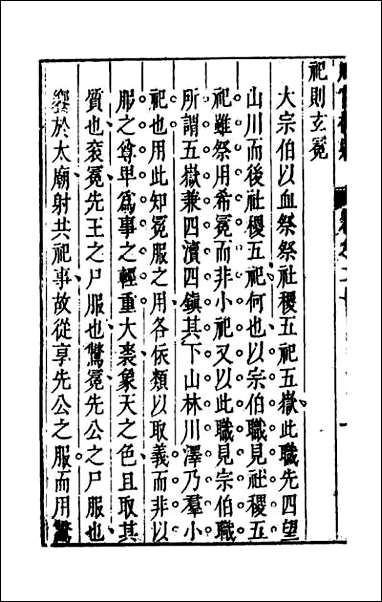 祀則玄冕
大宗伯以血祭祭社稷五祀五嶽此職先四望
山川而後社稷五祀何也以宗伯職見社稷五
祀雖祭用希冕而非小祀又以此職見宗伯職
所謂五嶽兼四瀆四鎮其下山林川澤乃羣小
祀也用此知冕服之用各依類以取義而非以
服之尊卑爲事之輕重大裘象天之色且取其
質也袞冕先王之尸服也鷩冕先公之尸服也
饗於太廟射共祀事故從享先公之服而用鷩